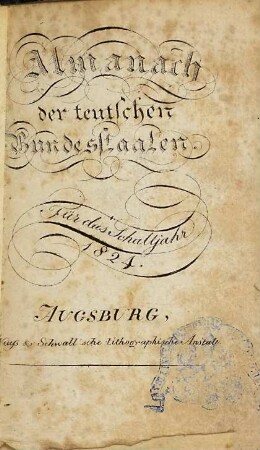 Almanach
der teutschen
Bundesstaaten.
Für das Schaltjahr
1824.
AUGSBURG,
& Schwall'sche lithographische Anstalt